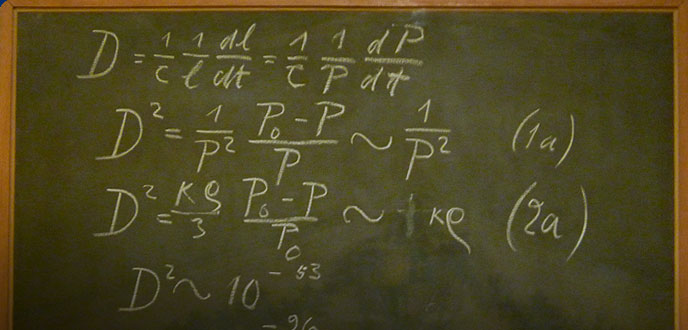 D = 1/c 1/l dl/dt = 1/c 1/P dP/dt
D² = 1/P² (P₀ - P)/P ~ 1/P² (1a)
D² = κρ/3 (P₀ - P)/P₀ ~ κρ (2a)
D² ~ 10⁻⁵³